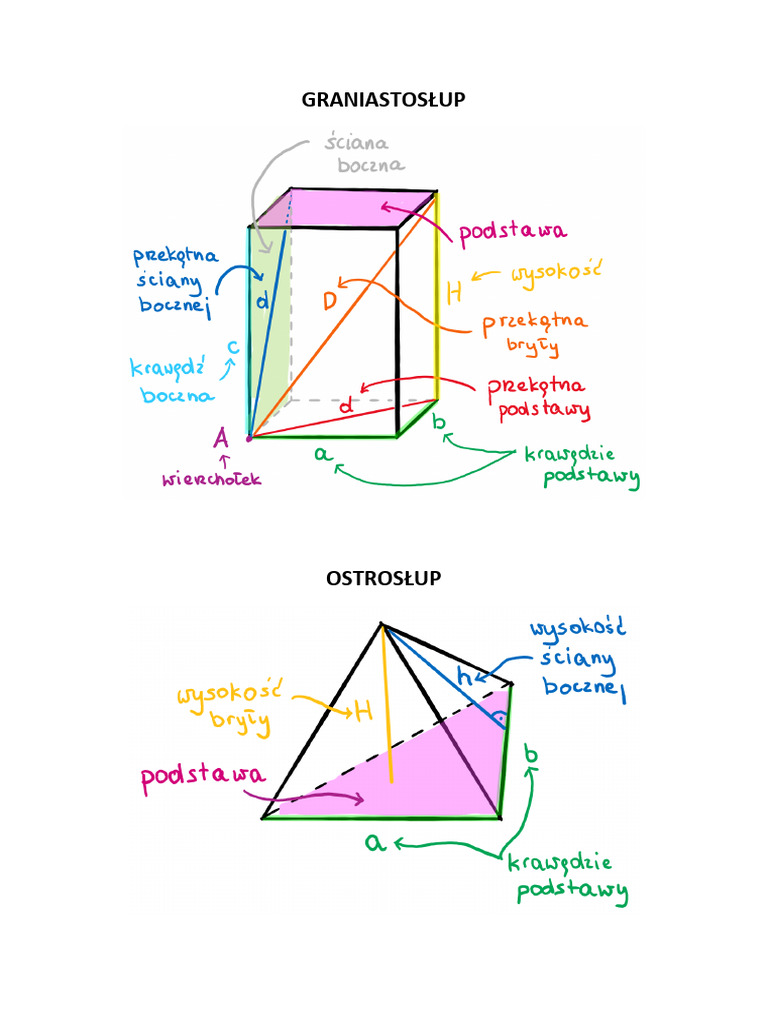 GRANIASTOSŁUP
ściana
boczna
podstawa
przekątna
ściany
bocznej
d
D
H
wysokość
przekątna
bryły
c
krawędź
boczna
przekątna
podstawy
d
b
A
a
wierzchołek
krawędzie
podstawy
OSTROSŁUP
wysokość
ściany
bocznej
h
wysokość
bryły
H
podstawa
b
a
krawędzie
podstawy